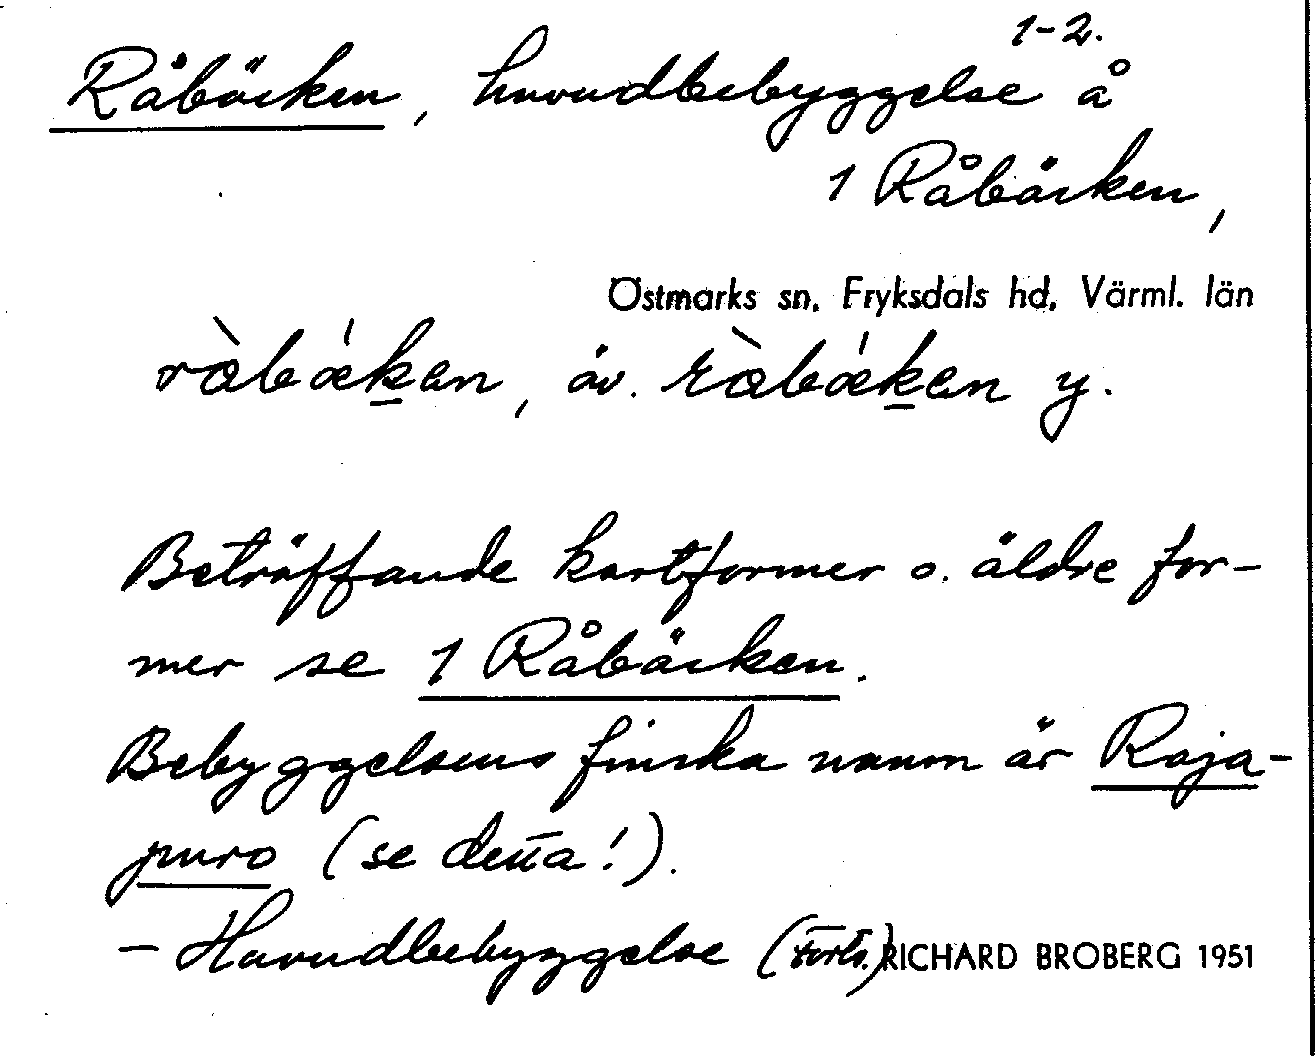 1-2.
Råbäcken, huvudbebyggelse å
1 Råbäcken,
Östmarks sn, Fryksdals hd, Värml. län
ràbǽk̲an, äv. ràbǽk̲an y.
Beträffande kartformer o. äldre for-
mer se 1 Råbäcken.
Bebyggelsens finska namn är Raja-
puro (se detta!).
- Huvudbebyggelse (Forts.)
RICHARD BROBERG 1951